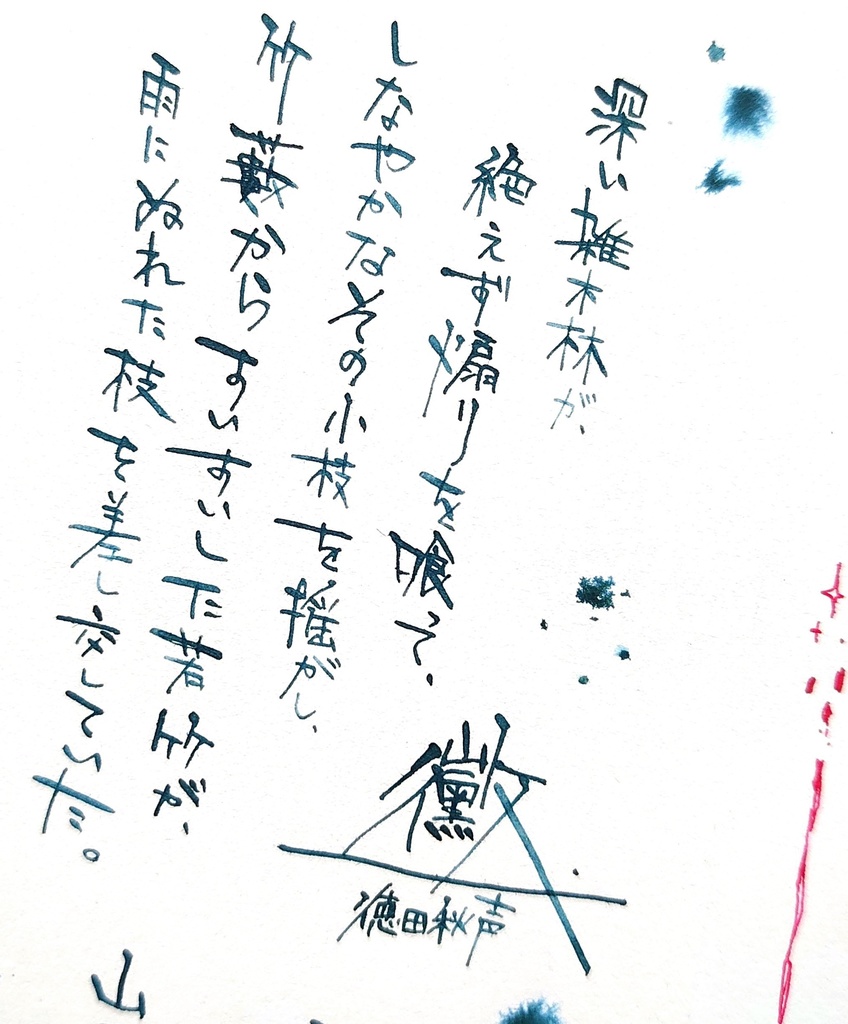 深い雑木林が、
絶えず煽りを喰って、
しなやかなその小枝を揺がし、
竹藪からすいすいした若竹が、
雨にぬれた枝を差し交していた。
黴
徳田秋声
山